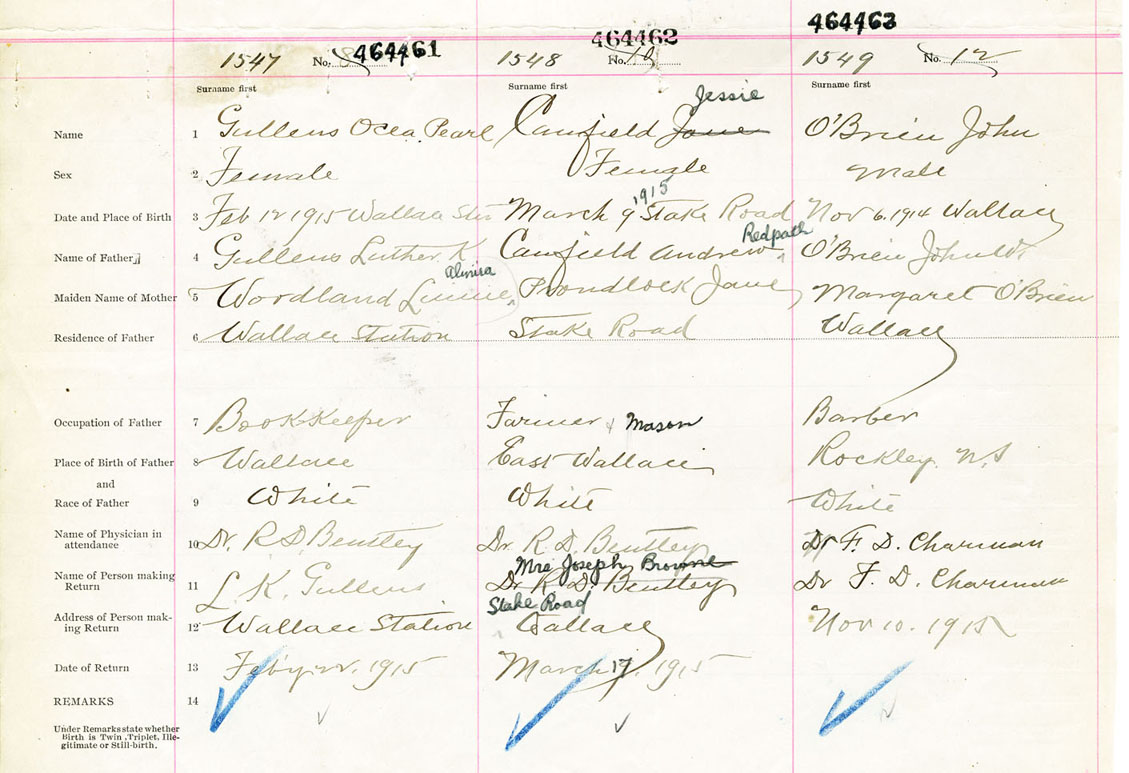 464461 464462 464463
1547 No. 8 1548 No. 10 1549 No. 12
Surname first Surname first Surname first
Jessie
Name 1 Gullens Ocea Pearl Canfield Jane O'Brien John
Sex 2 Female Female Male
1915
Date and Place of Birth 3 Feb 12 1915 Wallace Stn March 9 Stake Road Nov 6, 1914 Wallace
Redpath
Name of Father 4 Gullens Luther K Canfield Andrew O'Brien John
Almira
Maiden Name of Mother 5 Woodland Proudlock Jane Margaret O'Brien
Residence of Father 6 Wallace Station Stake Road Wallace
Occupation of Father 7 Bookkeeper Farmer & Mason Barber
Place of Birth of Father 8 Wallace East Wallace Rockley N.S
and
Race of Father 9 White White White
Name of Physician in
attendance 10 Dr. R D Bentley Dr R. D. Bentley Dr F. D. Charman
Mrs Joseph Browne
Name of Person making
Return 11 L. K. Gullens Dr R. D. Bentley Dr F. D. Charman
Stake Road
Address of Person mak-
ing Return 12 Wallace Station Wallace Nov 10. 1915
Date of Return 13 Feb'y 22. 1915 March 17, 1915
REMARKS 14
Under Remarks state whether
Birth is Twin, Triplet, Ille-
gitimate or Still-birth.